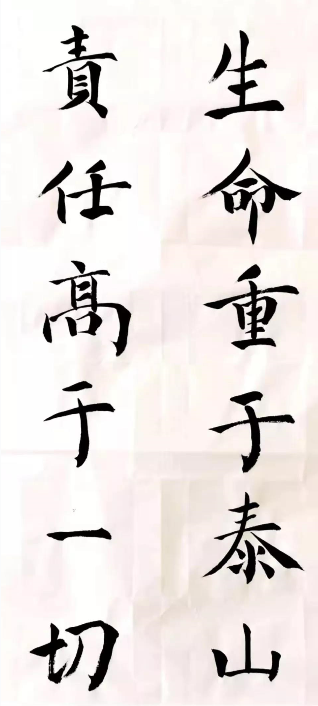 生命重于泰山
責任髙于一切